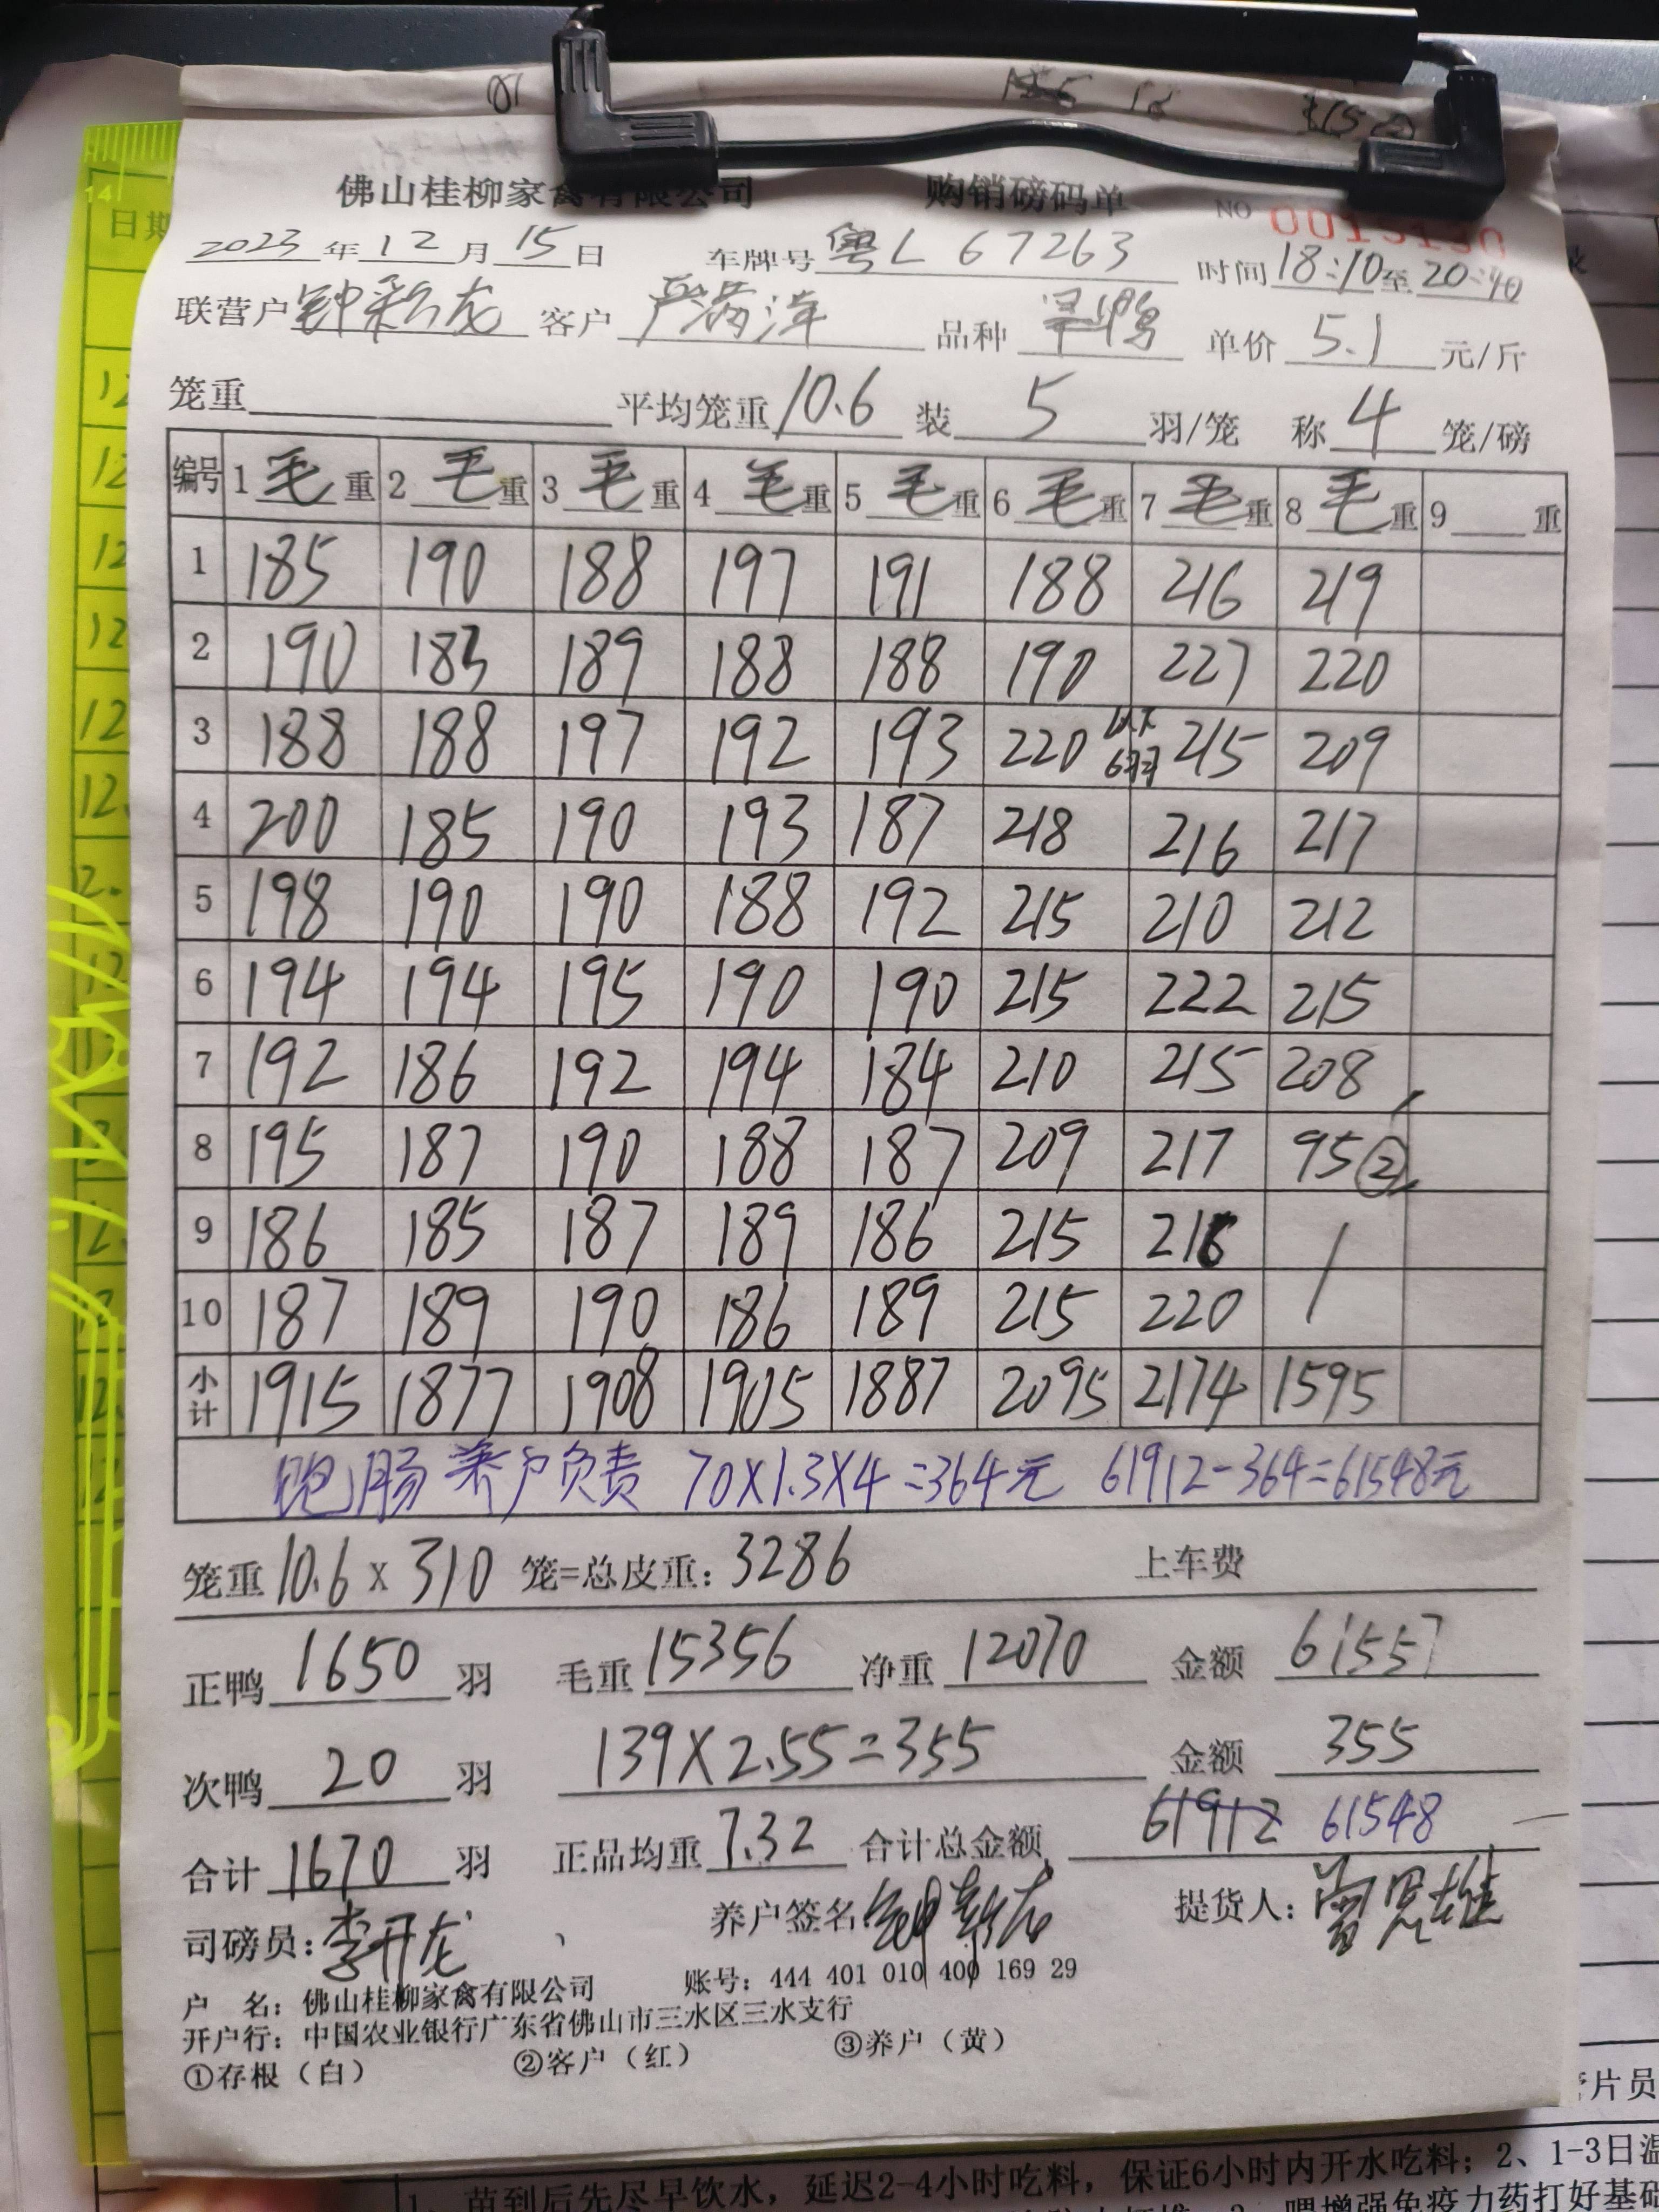 佛山桂柳家禽有限公司 购销磅码单 NO
2023年12月15日 车牌号粤L 67263 时间18:10至20:40
联营户 客户 严满洋 品种 单价5.1元/斤
笼重 平均笼重10.6 装5羽/笼 称4笼/磅
编号 1毛重 2毛重 3毛重 4毛重 5毛重 6毛重 7毛重 8毛重 9重
1 185 190 188 197 191 188 216 219
2 190 183 189 188 188 190 227 220
3 188 188 197 192 193 220 以下6羽 215 209
4 200 185 190 193 187 218 216 217
5 198 190 190 188 192 215 210 212
6 194 194 195 190 190 215 222 215
7 192 186 192 194 184 210 215 208
8 195 187 190 188 187 209 217 95②
9 186 185 187 189 186 215 216
10 187 189 190 186 189 215 220
小计 1915 1877 1908 1905 1887 2095 2174 1595
饱肠养户负责 70X1.3X4=364元 61912-364=61548元
笼重10.6x310笼=总皮重:3286 上车费
正鸭1650羽 毛重15356 净重12070 金额61557
次鸭20羽 139X2.55=355 金额355
合计1670羽 正品均重7.32 合计总金额 61912 61548
司磅员:李开龙 养户签名 提货人:
户 名:佛山桂柳家禽有限公司 账号:444 401 010 400 169 29
开户行:中国农业银行广东省佛山市三水区三水支行
①存根(白) ②客户(红) ③养户(黄)
片员
1、苗到后先尽早饮水,延迟2-4小时吃料,保证6小时内开水吃料;2、1-3日温
喂增强免疫力药打好基础